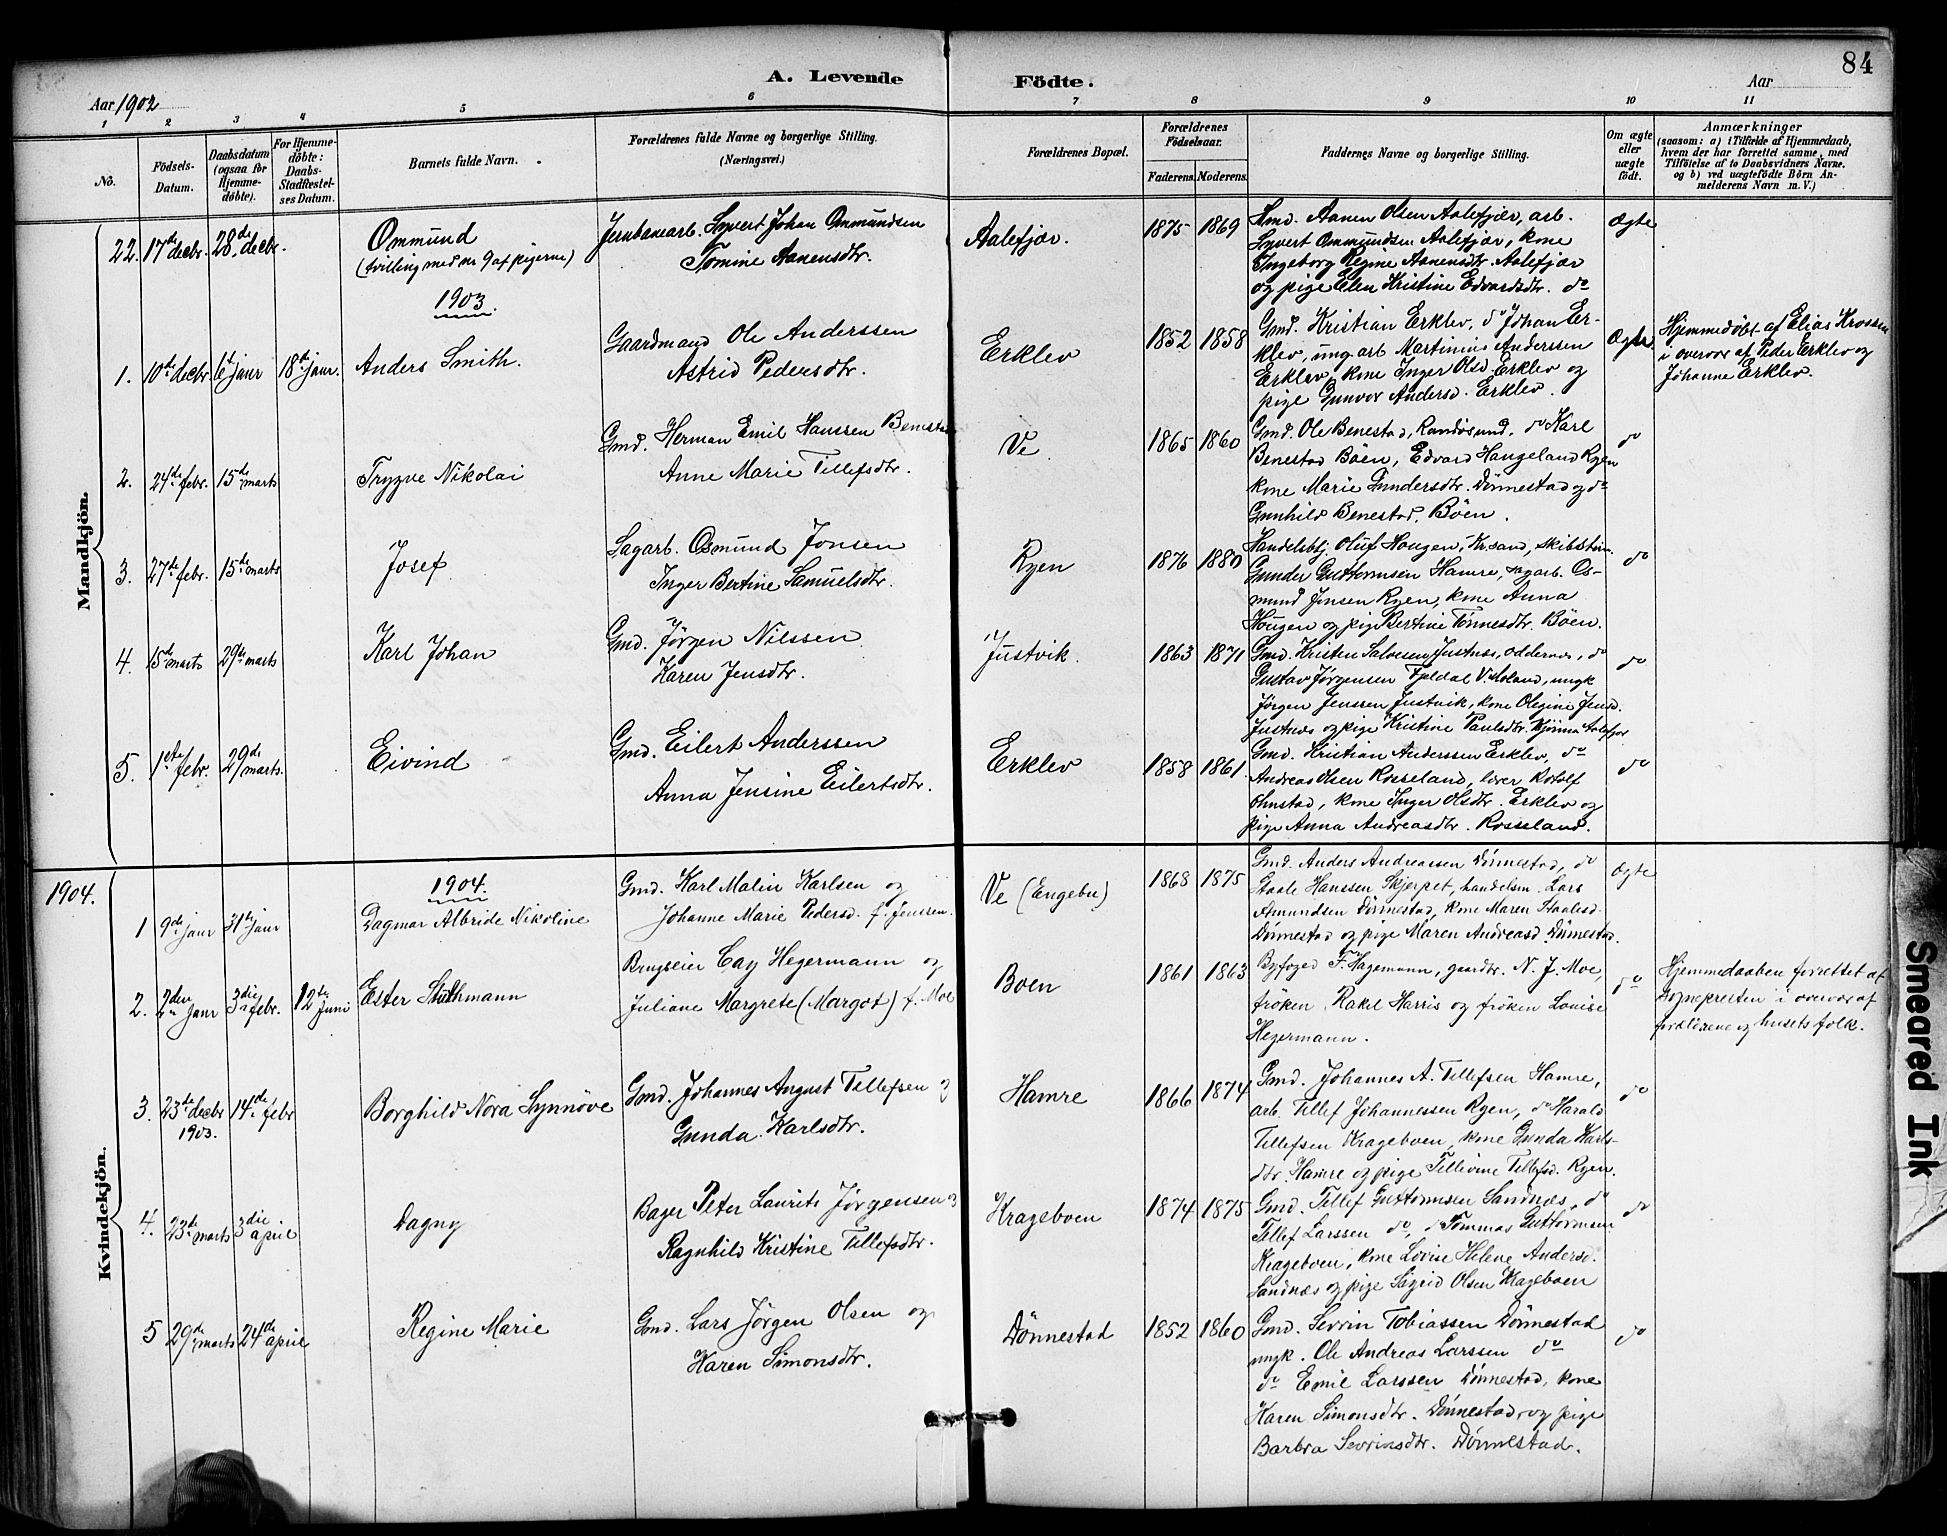 84
A. Levende Födte.
Aar 1902
Aar
1 2 3 4 5 6 7 8 9 10 11
No.
Födsels-Datum.
Daabsdatum (ogsaa for Hjemme-döbte).
For Hjemme-döbte: Daabs-Stadfæstel-ses Datum.
Barnets fulde Navn.
Forældrenes fulde Navne og borgerlige Stilling. (Næringsvei.)
Forældrenes Bopæl.
Forældrenes Födselsaar.
Faderens. Moderens.
Faddernes Navne og borgerlige Stilling.
Om ægte eller uægte födt.
Anmærkninger
(saasom: a) i Tilfælde af Hjemmedaab, hvem der har forrettet samme, med Tilföielse af to Daabsvidners Navne. og b) ved uægtefödte Börn An-melderens Navn m. V.)
Mandkjön.
22. 17de decbr. 28de decbr.
Ommund
(tvilling med nr 9 af pigerne)
Jernbanearb. Syvert Johan Ommundsen
Tomine Aanensdtr.
Aalefjær.
1875 1869
Gmd. Aanen Olsen Aalefjær, arb.
Syvert Ommundsen Aalefjær, kone
Ingeborg Regine Aanensdtr. Aalefjær
og pige Elen Kristine Edvardsdtr. do
Ægte
1903.
1. 10de decbr 6te janr 18de janr.
Anders Smith.
Gaardmand Ole Anderssen
Astrid Pedersdtr.
Erklev
1852 1858
Gmd. Kristian Erklev, do Johan Er-
klev, ung. arb Martinius Anderssen
Erklev, kone Inger Olsd. Erklev og
pige Gunvor Andersd. Erklev.
Ægte
Hjemmedøbt af Elias Krossen
i overvær af Peder Erklev og
Johanne Erklev.
2. 24de febr. 15de marts
Trygve Nikolai
Gmd. Herman Emil Hanssen Benestad
Anne Marie Tellefsdtr.
Ve
1865 1860
Gmd. Ole Benestad, Randøsund, do Karl
Benestad Böen, Edvard Hangeland Ryen
kone Marie Gundersdtr. Dönnestad og do
Gunhild Benestad, Böen.
do
3. 27de febr. 15de marts
Josef
Sagarb. Osmund Jonsen
Inger Bertine Samuelsdtr.
Ryen
1876 1880
Handelsbtj. Oluf Hougen, Kr.sand, skibstøm.
Gunder Guttormsen Hamre, sagarb. Os-
mund Jensen Ryen, kone Anna
Hougen og pige Bertine Tönnesdtr. Böen.
do
4. 15de marts 29de marts
Karl Johan
Gmd. Jørgen Nilssen
Karen Jensdtr.
Justvik.
1863 1871
Gmd. Kristen Salvesen Justnæs, Oddernes, do
Gustav Jørgensen Fjeldal V. Moland, ungk
Jørgen Jenssen Justvik, kone Olegine Jensd.
Justnæs og pige Kristine Paulsdtr. Kjönna Aalefjær
do
5. 1ste febr. 29de marts.
Eivind
Gmd. Eilert Anderssen
Anna Jensine Eilertsdtr.
Erklev
1858 1861.
Gmd. Kristian Anderssen Erklev, do
Andreas Olsen Rosseland, lærer Rolf
Ohnstad, kone Inger Olsdtr. Erklev og
pige Anna Andreasdtr. Rosseland.
do
1904.
Kvindekjön.
1904.
1 9de janr 31te janr
Dagmar Albride Nikoline
Gmd. Karl Malin Karlsen og
Johanne Marie Pedersd. f. Jenssen.
Ve (Engebu)
1868 1875
Gmd. Anders Andreassen Dönnestad, do
Staale Hanssen Skjerpet, handelsm. Lars
Asmundsen Dönnestad, kone Maren Staalesd.
Dönnestad og pige Maren Andreasd. Dönnestad.
Ægte
2. 2den janr 3die febr. 12te juni
Ester Stuhmann
Brugseier Cay Hegermann og
Juliane Margrete (Margot) f. Moe
Boen
1861 1863
Byfoged F. Hagemann, gaardbr. N. J. Moe,
frøken Rakel Harris og frøken Louise
Hegermann.
do
Hjemmedaaben forrettet af
sognepresten i overvær af
forældrene og husets folk.
3. 23de decbr 1903. 14de febr
Borghild Nora Synnöve
Gmd. Johannes August Tellefsen og
Gunda Karlsdtr.
Hamre
1866 1874
Gmd. Johannes A. Tellefsen Hamre,
arb. Tellef Johannessen Ryen, do Harald
Tellefsen Krageboen, kone Gunda Karls-
dtr. Hamre og pige Tellevine Tellefsd. Ryen.
do
4. 23de marts 3die april
Dagny
Bager Peter Laurits Jørgensen og
Ragnhild Kristine Tellefsdtr.
Krageboen
1874 1875
Gmd. Tellef Guttormsen Sandnæs, do
Tellef Larssen do, do Tommas Guttormsen
Krageboen, kone Lovise Helene Andersd.
Sandnæs og pige Sigrid Olsen Krageboen
do
5 29de marts 24de april
Regine Marie
Gmd. Lars Jørgen Olsen og
Karen Simonsdtr.
Dönnestad
1852 1860
Gmd. Sevrin Tobiassen Dönnestad
ungk. Ole Andreas Larssen do
do Emil Larssen Dönnestad, kone
Karen Simonsdtr. Dönnestad, og pige
Barbra Sevrinsdtr. Dönnestad.
do
Smeared Ink